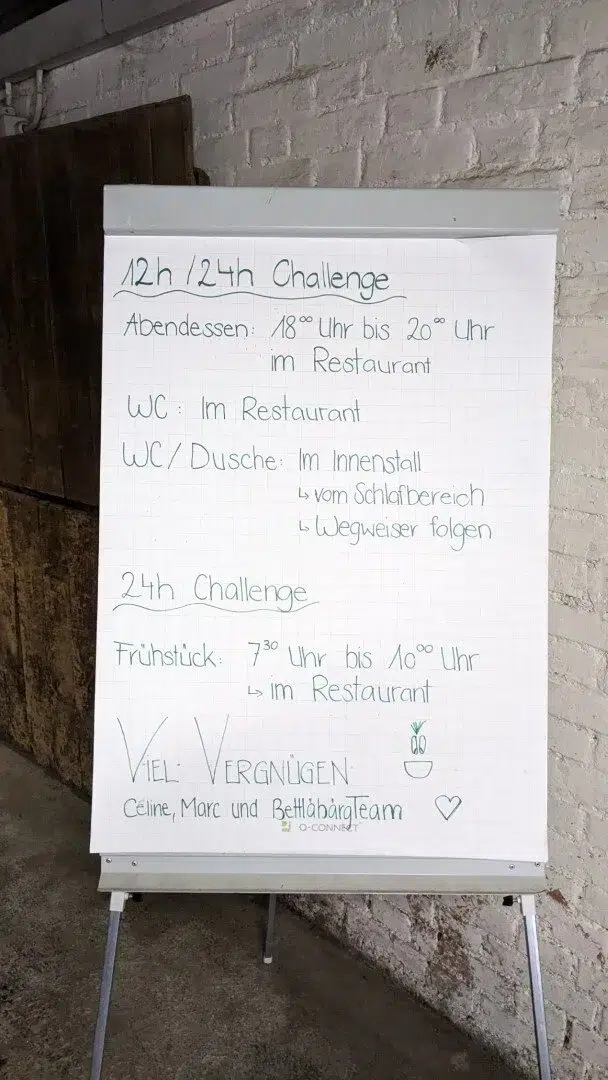 12h / 24h Challenge
Abendessen: 18⁰⁰ Uhr bis 20⁰⁰ Uhr
im Restaurant
WC: Im Restaurant
WC / Dusche: Im Innenstall
↳ vom Schlafbereich
↳ Wegweiser folgen
24h Challenge
Frühstück: 7³⁰ Uhr bis 10⁰⁰ Uhr
↳ im Restaurant
VIEL VERGNÜGEN
Céline, Marc und BettlabärgTeam
Q-CONNECT